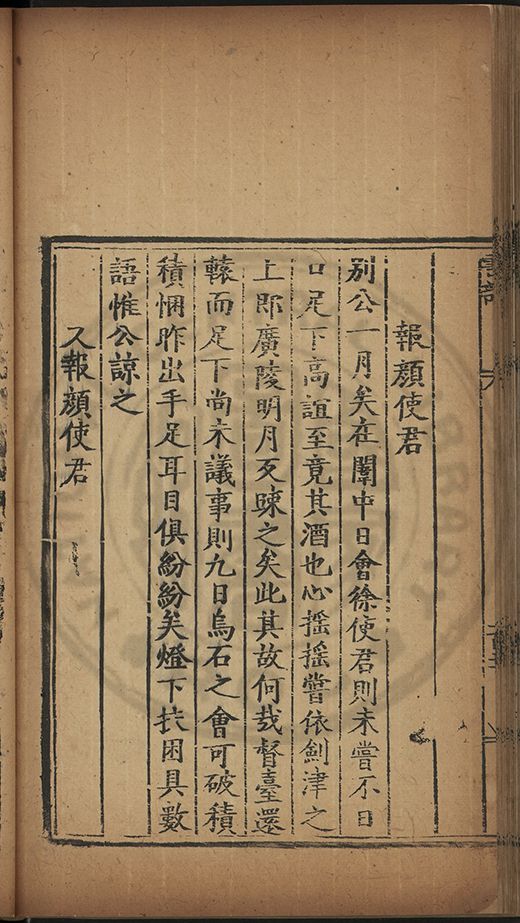 報顏使君
別公一月矣在闈中日會徐使君則未嘗不日
口足下高誼至竟其酒也心搖搖嘗依劍津之
上即廣陵明月反踈之矣此其故何哉督臺還
轅而足下尚未議事則九日烏石之會可破積
積悃昨出手足耳目俱紛紛矣燈下扶困具數
語惟公諒之
又報顏使君